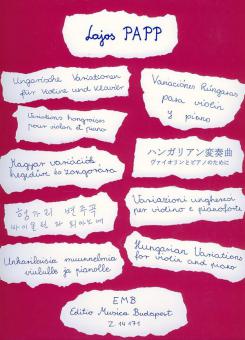 Lajos PAPP
Ungarische Variationen
für Violine und Klavier
Variaciónes Húngaras
para violín
y piano
Variations hongroises
pour violon et piano
ハンガリアン変奏曲
ヴァイオリンとピアノのために
Magyar variációk
hegedűre és zongorára
Variazioni ungheresi
per violino e pianoforte
헝가리 변주곡
바이올린과 피아노에
Unkarilaisia muunnelmia
viululle ja pianolle
Hungarian Variations
for violin and piano
EMB
Editio Musica Budapest
Z. 14 171